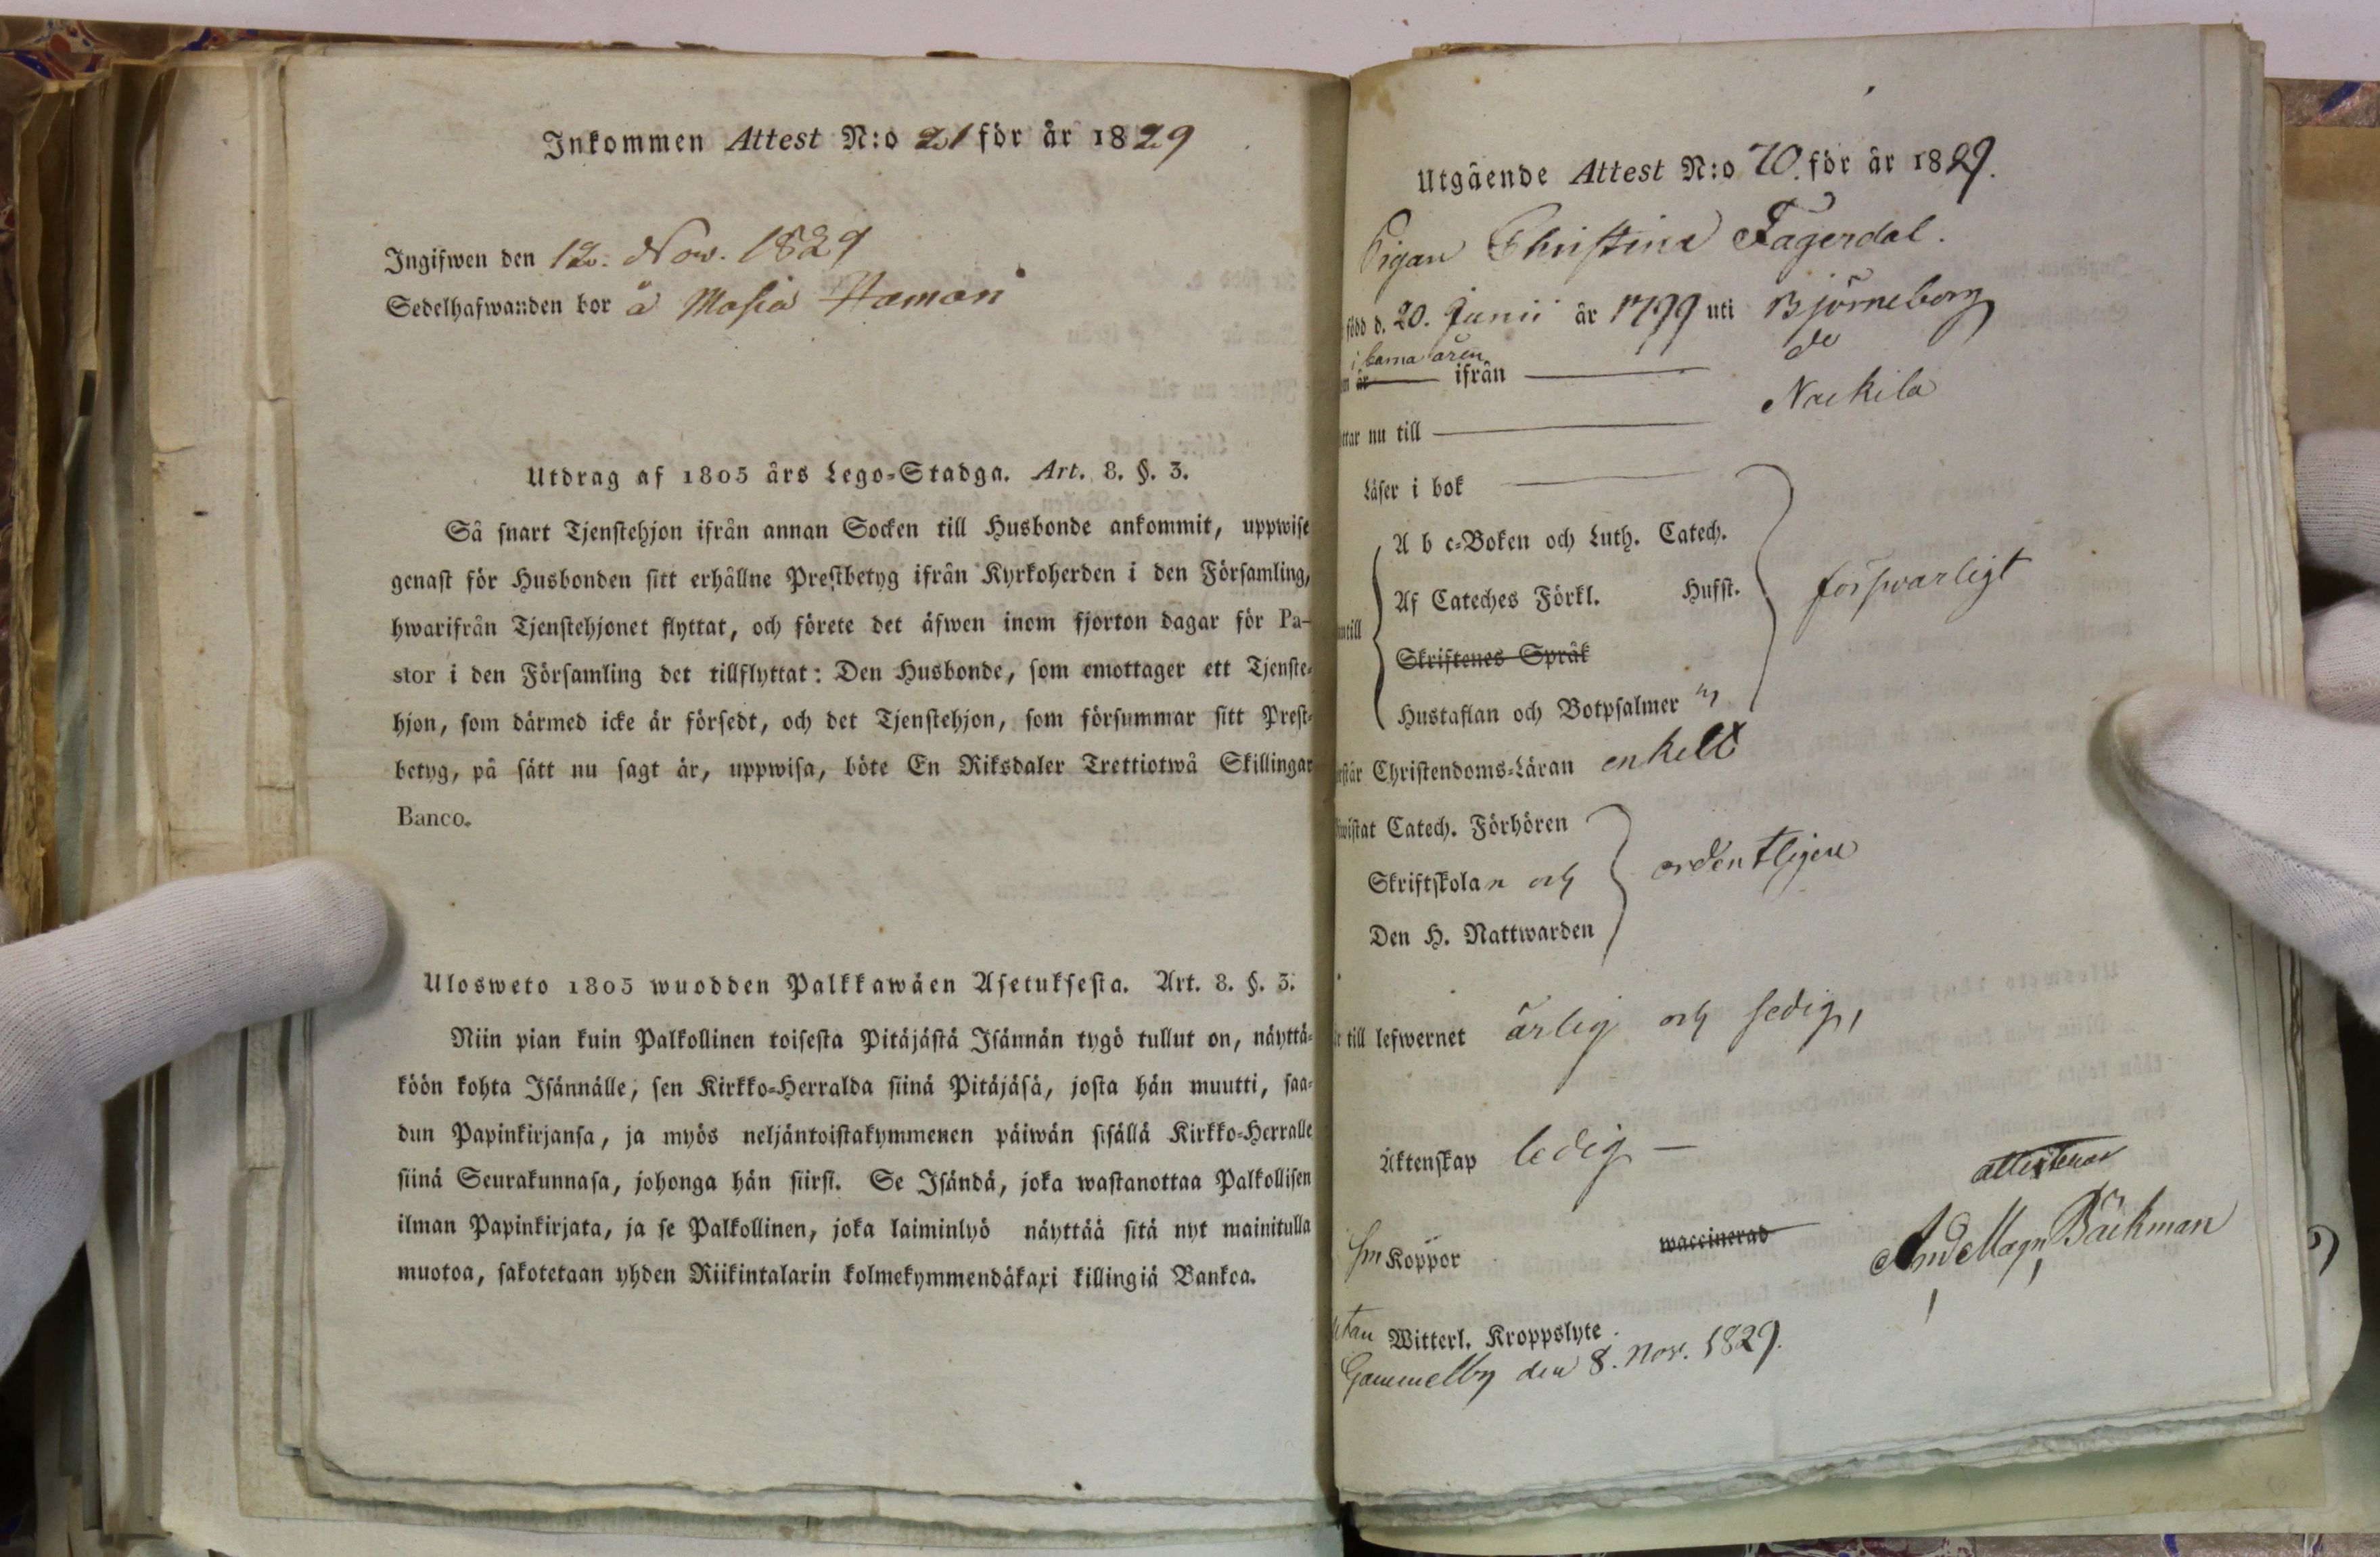 Inkommen Attest N:o 21 för år 1829
Ingifwen den 12. Nov. 1829
Sedelhafwanden bor å
Utdrag af 1805 års Lego-Stadga. Art. 8. §. 3.
Så snart Tjenstehjon ifrån annan Socken till Husbonde ankommit, uppwise
genast för Husbonden sitt erhållne Prestbetyg ifrån Kyrkoherden i den Församling,
hwarifrån Tjenstehjonet flyttat, och förete det äfwen inom fjorton dagar för Pa-
stor i den Församling det tillflyttat: Den Husbonde, som emottager ett Tjenste-
hjon, som därmed icke är försedt, och det Tjenstehjon, som försummar sitt Prest-
betyg, på sätt nu sagt är, uppwisa, böte En Riksdaler Trettiotwå Skillingar
Banco.
Ulosweto 1805 wuodden Palkkawäen Asetuksesta. Art. 8. §. 3.
Niin pian kuin Palkollinen toisesta Pitäjästä Isännän tygö tullut on, näyttä-
köön kohta Isännälle, sen Kirkko-Herralda siinä Pitäjäsä, josta hän muutti, saa-
dun Papinkirjansa, ja myös neljäntoistakymmenen päiwän sisällä Kirkko-Herralle
siinä Seurakunnasa, johonga hän siirsi. Se Isändä, joka wastanottaa Palkollisen
ilman Papinkirjata, ja se Palkollinen, joka laiminlyö näyttää sitä nyt mainitulla
muotoa, sakotetaan yhden Riikintalarin kolmekymmendäkaxi killingiä Bankoa.
Utgående Attest N:o 70. för år 1829.
Pigan Christina Fagerdal.
född d. 20. Junii år 1799 uti Björneborg
i barna åren
år ifrån do
Nackila
ttar nu till
Läser i bok
A b c-Boken och Luth. Catech.
Af Cateches Förkl. Husst. försvarligt
ntill
Skriftenes Språk
Hustaflan och Botpsalmer
rstår Christendoms-Läran enkelt
wistat Catech. Förhören
Skriftskolan och ordentligen
Den H. Nattwarden
till lefwernet ärlig och sedig,
Äktenskap ledig
attesterar
Koppor waccinerad And Magn Bäckman
utan Witterl. Kroppslyte.
Gammelby den 8. Nov. 1829.